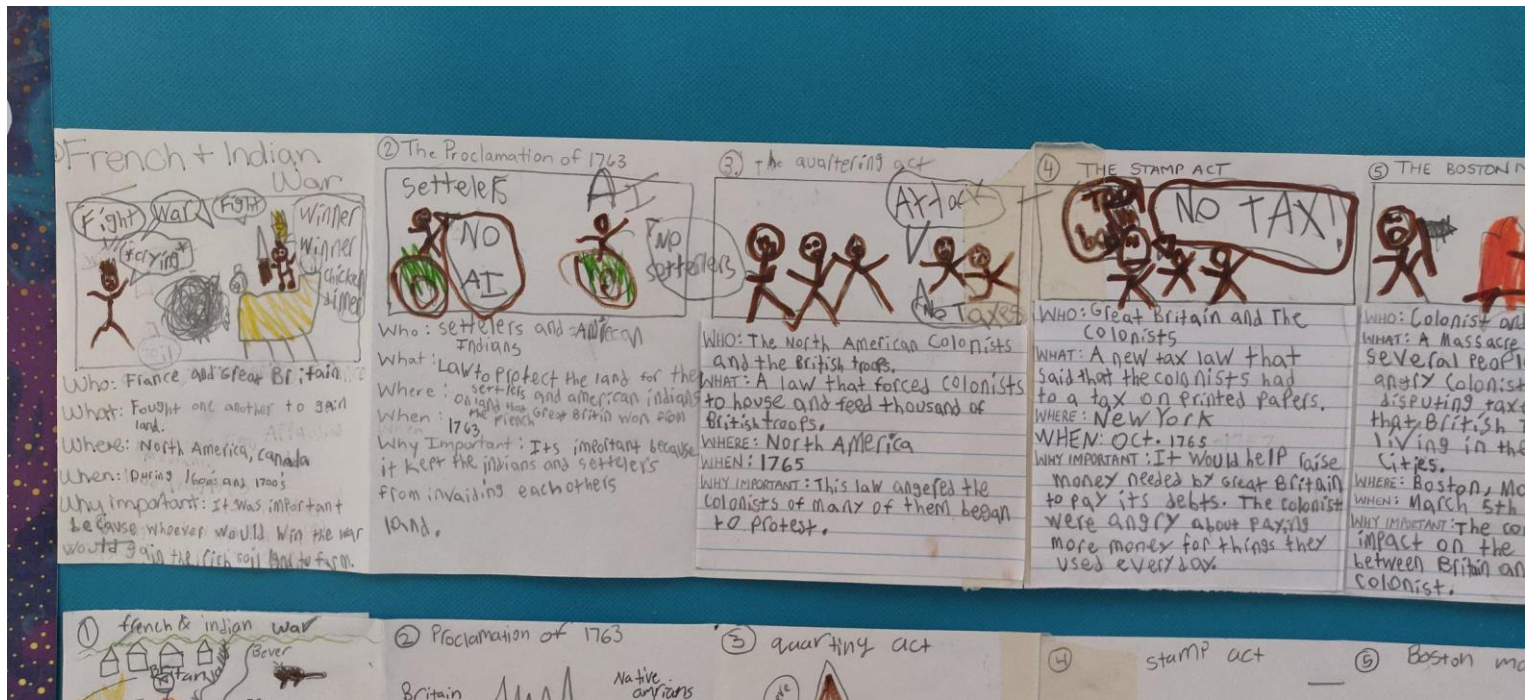 French + Indian
War
Fight
War
Fight
*crying*
Winner
Winner
chicken
dinner
Who: France and Great Britain
What: Fought one another to gain
land.
Where: North America, Canada
When: During 1600's and 1700's
Why important: It was important
because whoever would win the war
would gain the rich soil land to farm.
② The Proclamation of 1763
settelers
NO
AI
AI
NO
settelers
Who: settelers and American
Indians
What: Law to protect the land for the
settlers and american indians
Where: on land that
the french Great Britin won from
When: 1763
Why Important: Its important because
it kept the indians and settelers
from invaiding each others
land.
3. The quartering act
Attack
No Taxes
WHO: The North American Colonists
and the British troops.
WHAT: A law that forced colonists
to house and feed thousand of
British troops.
WHERE: North America
WHEN: 1765
WHY IMPORTANT: This law angered the
colonists of many of them began
to protest.
④ THE STAMP ACT
NO TAX!
WHO: Great Britain and The
colonists
WHAT: A new tax law that
said that the colonists had
to a tax on printed papers.
WHERE: New York
WHEN: Oct. 1765
WHY IMPORTANT: It would help raise
money needed by Great Britain
to pay its debts. The colonist
were angry about paying
more money for things they
used everyday.
⑤ THE BOSTON M
WHO: Colonist and
WHAT: A Massacre
several peopl
angry colonist
disputing tax
that British
living in the
cities.
WHERE: Boston, Ma
WHEN: March 5th
WHY IMPORTANT: The co
impact on the
between Britain an
colonist.
① french & indian war
Bever
② Proclamation of 1763
Britain
Native
amrians
③ quartiny act
④ stamp act
⑤ Boston ma